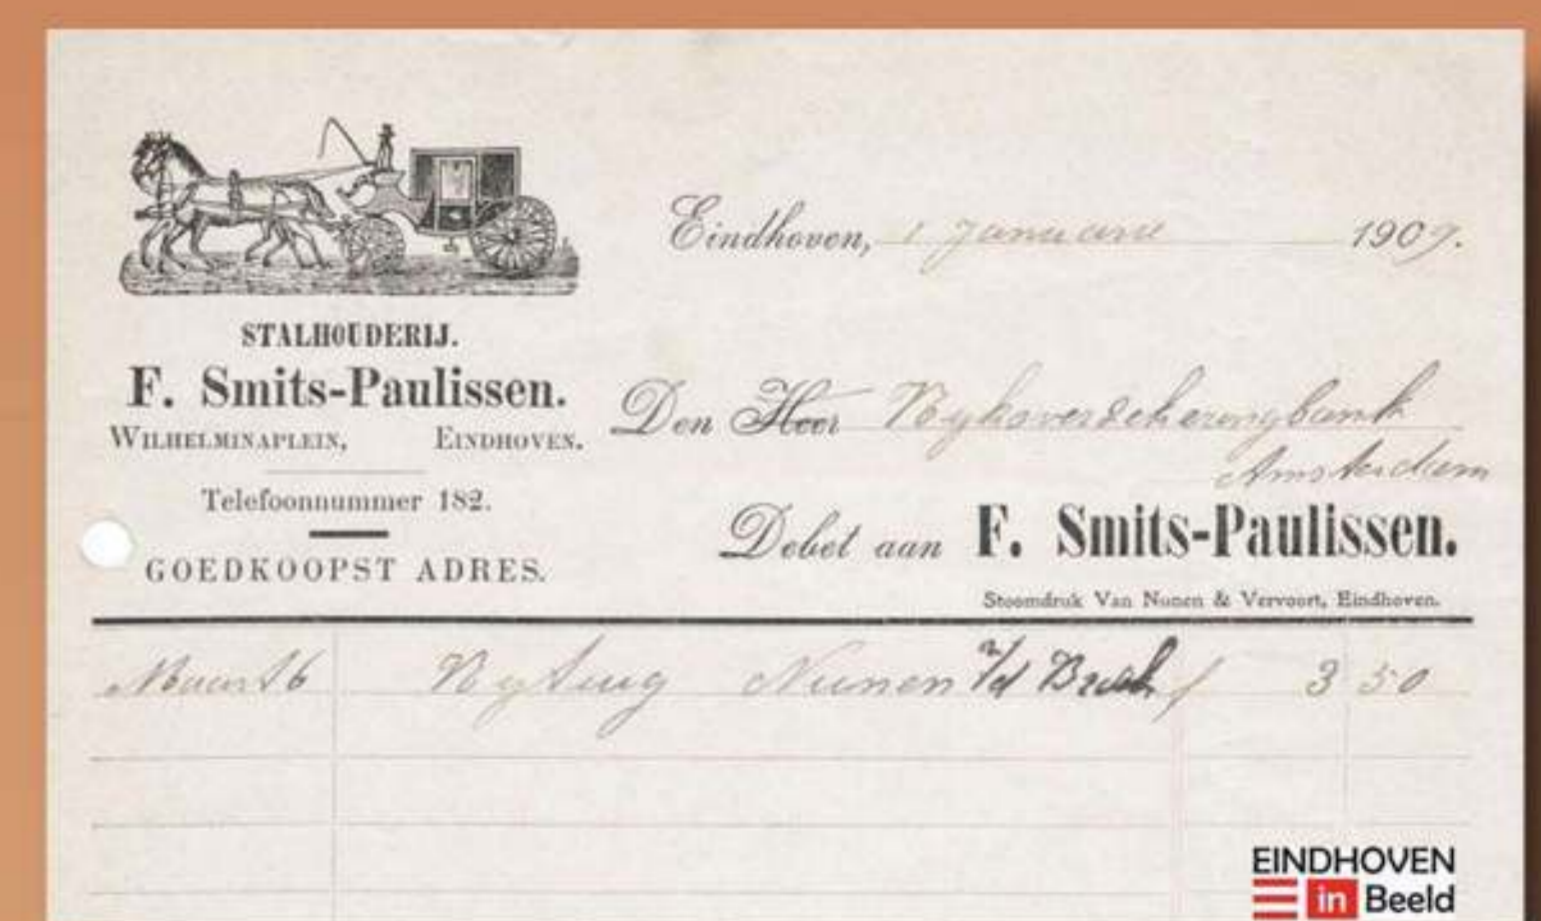 STALHOUDERIJ.
F. Smits-Paulissen.
WILHELMINAPLEIN, EINDHOVEN.
Telefoonnummer 182.
GOEDKOOPST ADRES.
Eindhoven, 1 Januarie 1909.
Den Heer Ryksverzekeringbank
Amsterdam
Debet aan F. Smits-Paulissen.
Stoomdruk Van Nunen & Vervoort, Eindhoven.
Maart 6 Rytuig Nunen v/d Broek f 3 50
EINDHOVEN
in Beeld